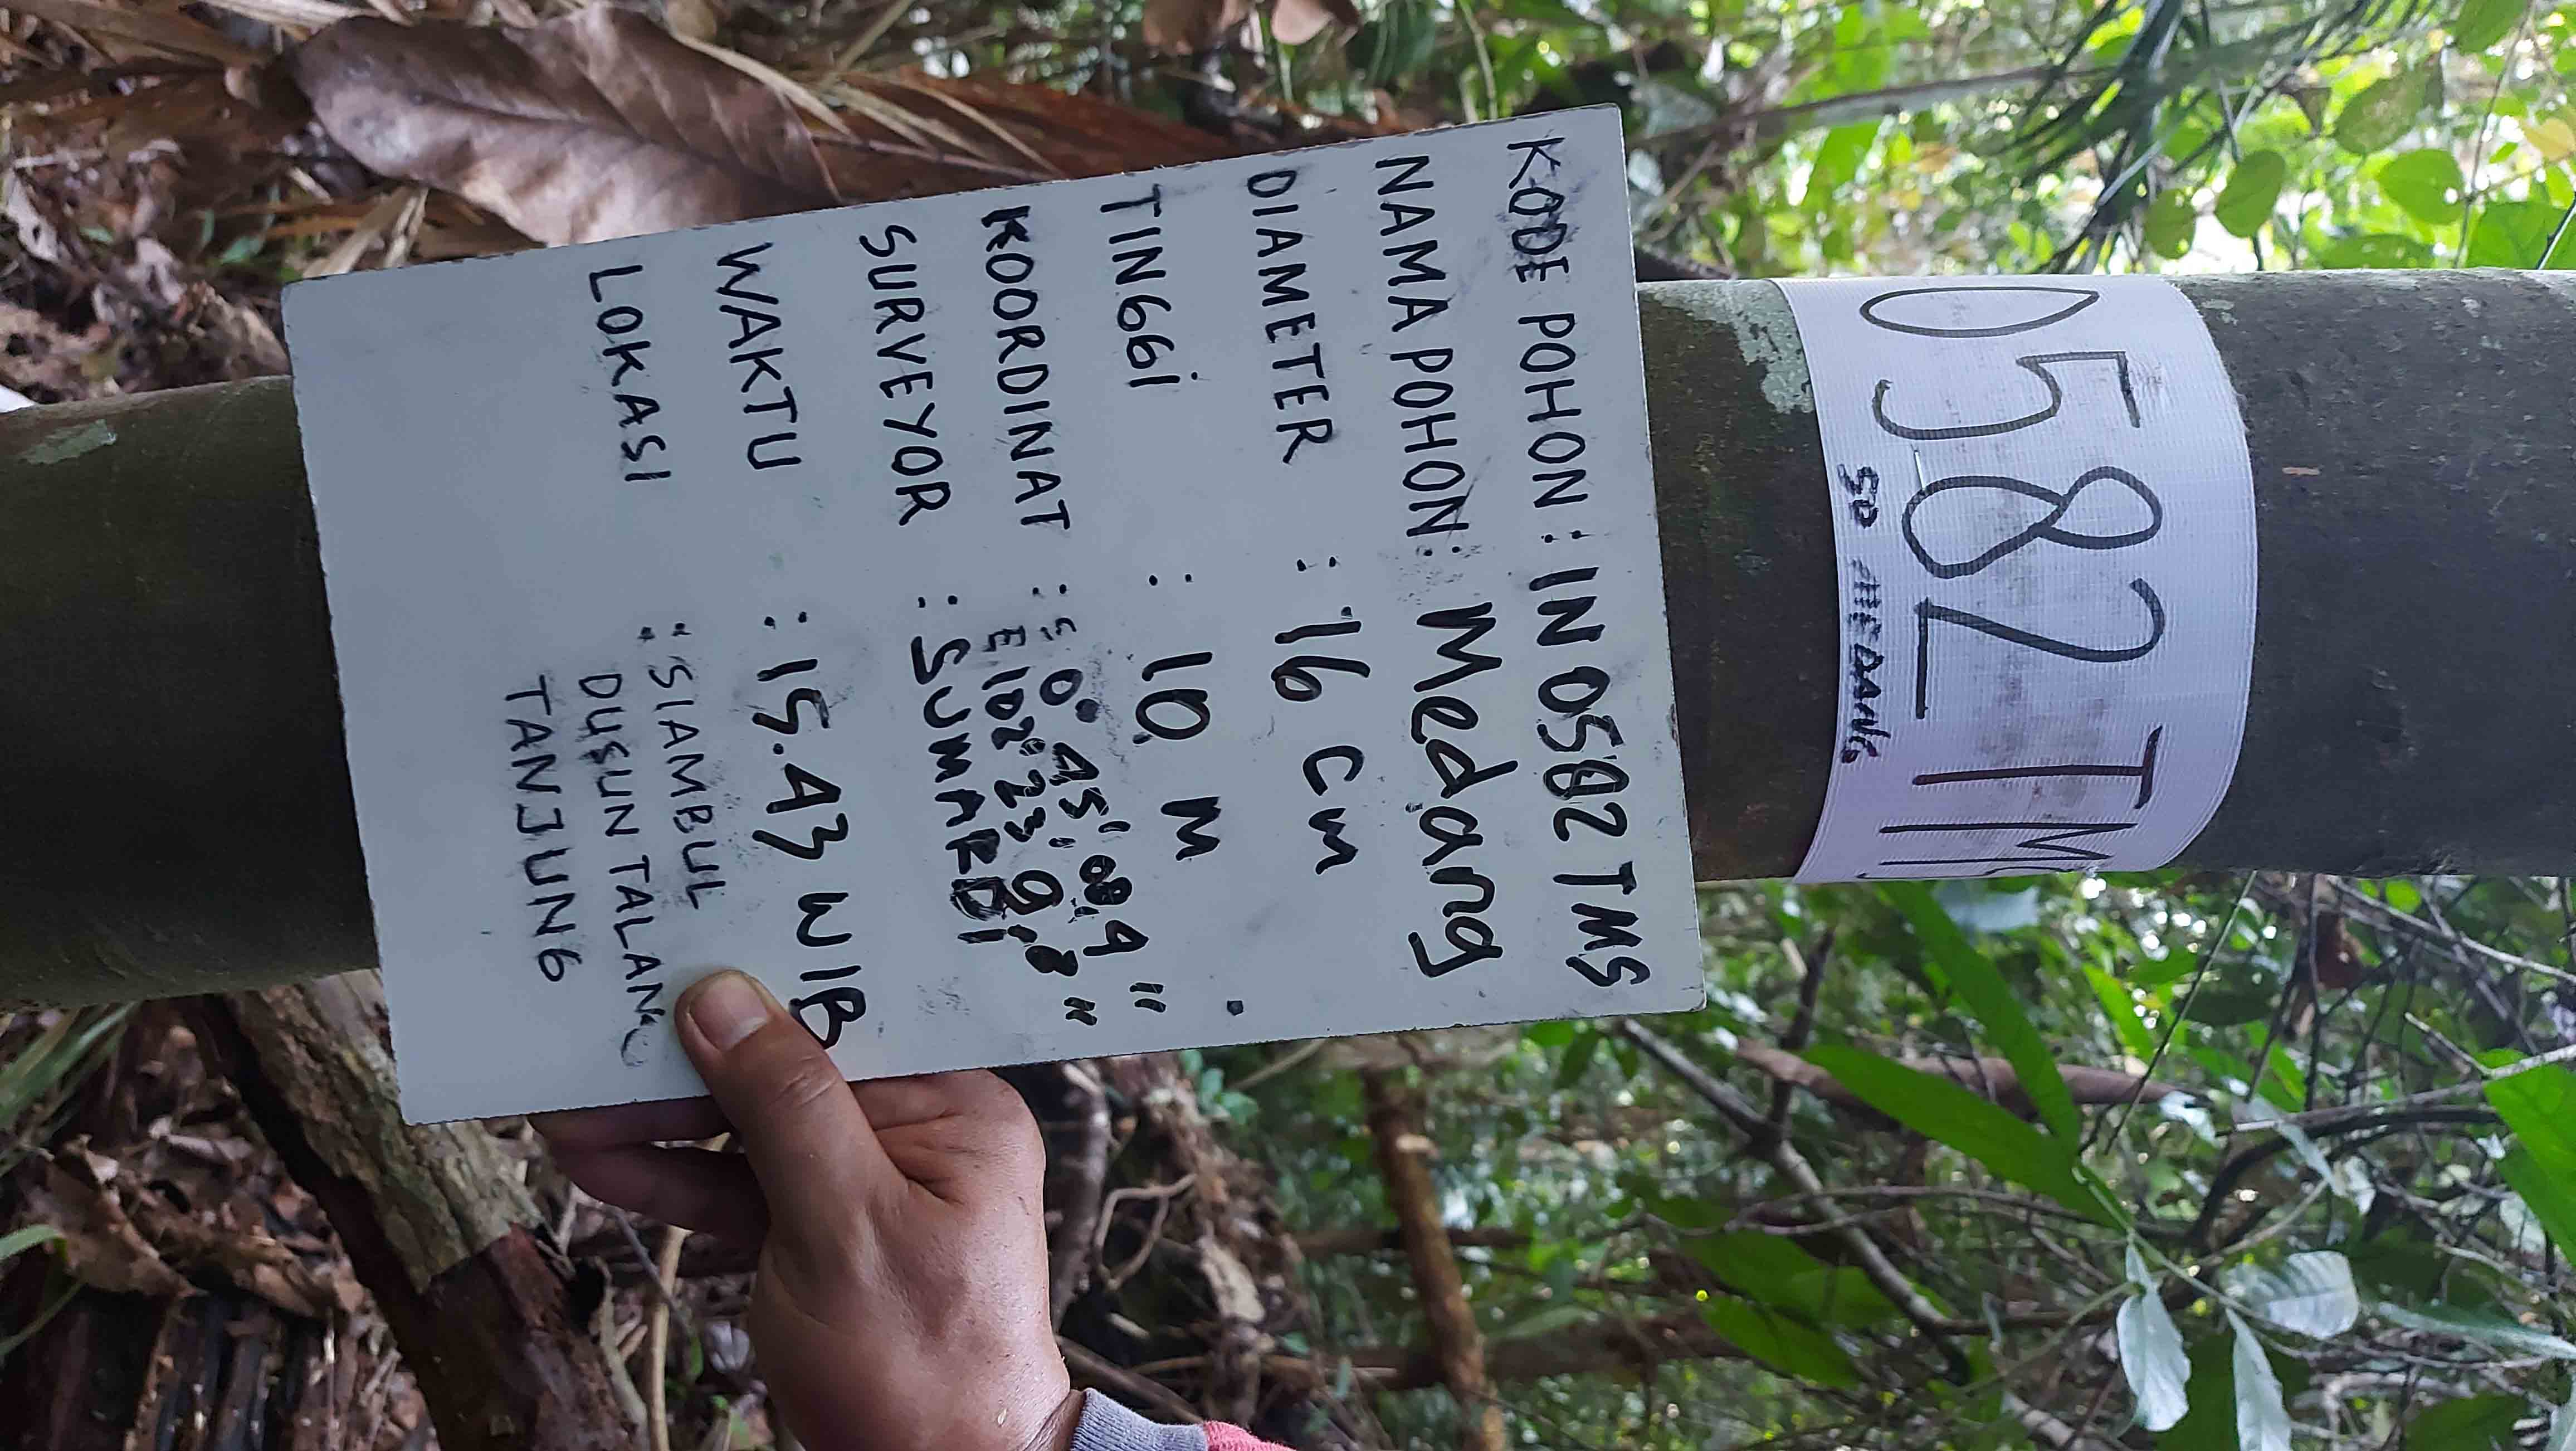 0582 TMS
50 MEDANG
KODE POHON : IN 0582 TMS
NAMA POHON : Medang
DIAMETER : 16 cm
TINGGi : 10 M
KOORDINAT : S 0° 45' 00,9"
E 102° 23'
SURVEYOR : SUMARDI
WAKTU : 15.43 WIB
LOKASI : SIAMBUL
DUSUN TALANG
TANJUNG